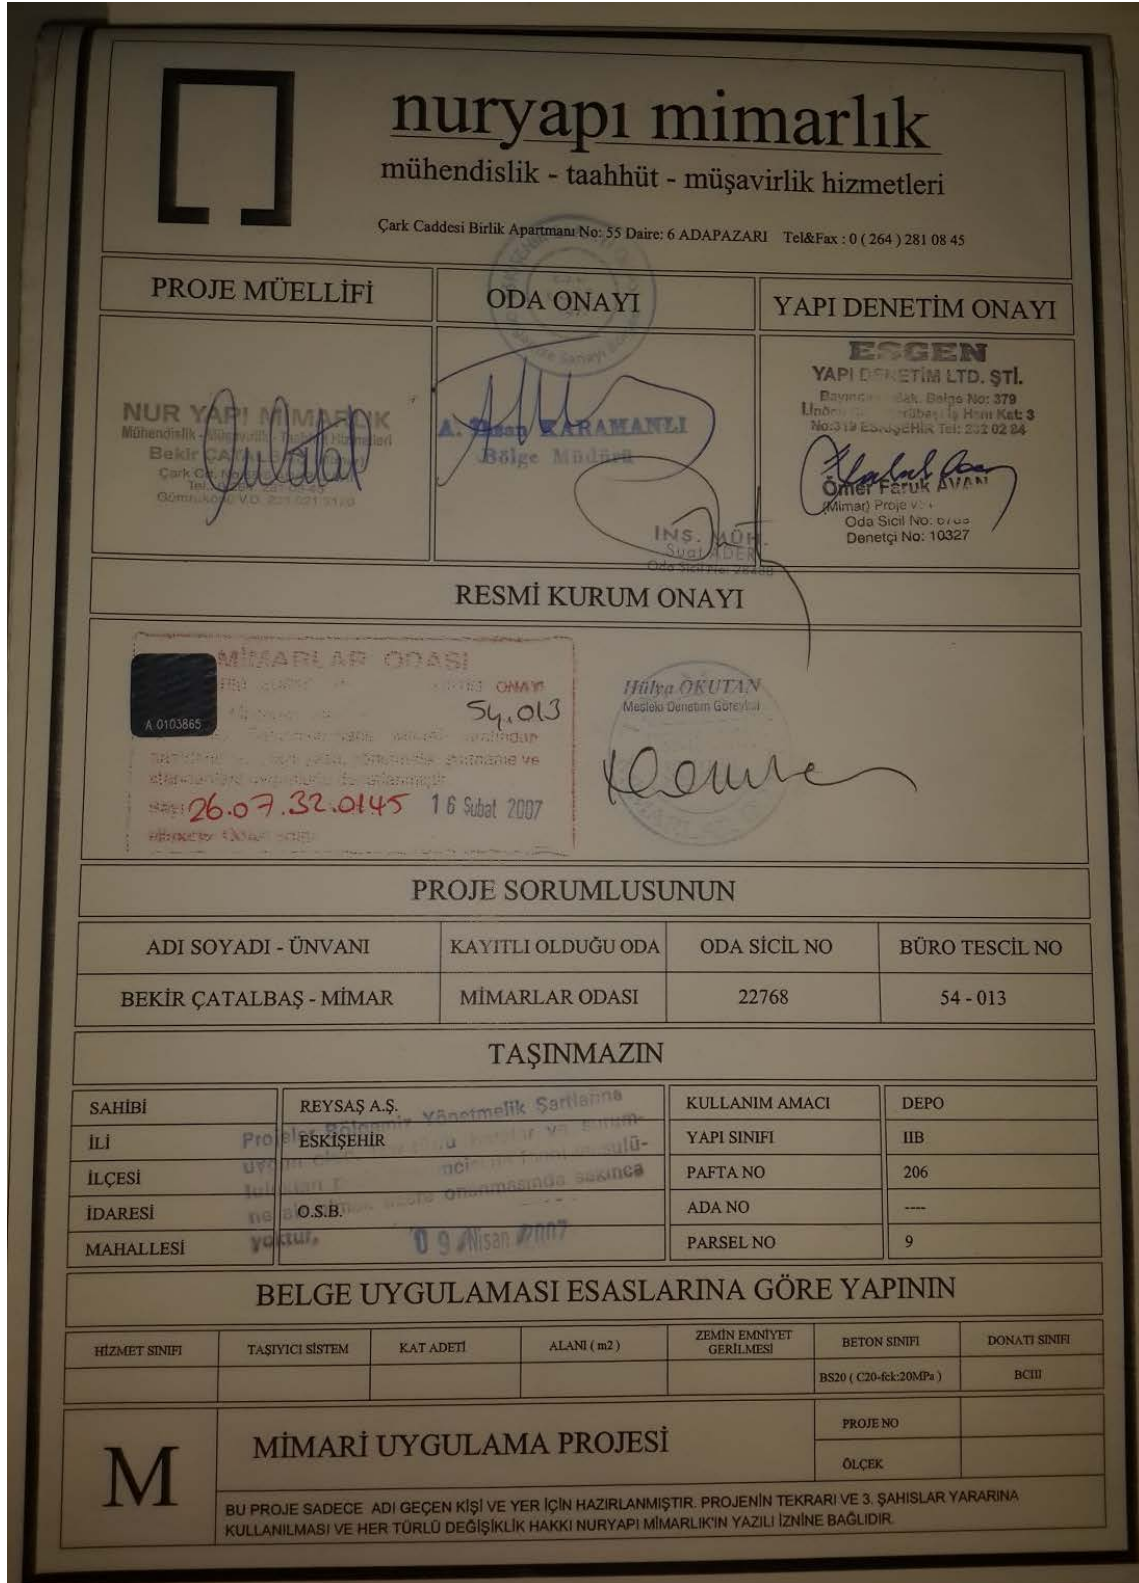 nuryapı mimarlık
mühendislik - taahhüt - müşavirlik hizmetleri
Çark Caddesi Birlik Apartmanı No: 55 Daire: 6 ADAPAZARI Tel&Fax : 0 ( 264 ) 281 08 45
PROJE MÜELLİFİ
ODA ONAYI
YAPI DENETİM ONAYI
NUR YAPI MİMARLIK
Mühendislik
Bekir
A. KARAMANLI
Bölge Müdürü
İNŞ. MÜH.
Suat ADER
ESGEN
YAPI DENETİM LTD. ŞTİ.
Belge No: 379
Kat: 3
No:319 ESKİŞEHİR Tel: 232 02 84
Ömer Faruk AVAN
(Mimar) Proje
Oda Sicil No:
Denetçi No: 10327
RESMİ KURUM ONAYI
MİMARLAR ODASI
ONAYI
A 0103865
54.013
26.07.32.0145 16 Şubat 2007
Hülya OKUTAN
Mesleki Denetim Görevlisi
PROJE SORUMLUSUNUN
ADI SOYADI - ÜNVANI KAYITLI OLDUĞU ODA ODA SİCİL NO BÜRO TESCİL NO
BEKİR ÇATALBAŞ - MİMAR MİMARLAR ODASI 22768 54 - 013
TAŞINMAZIN
SAHİBİ REYSAŞ A.Ş. KULLANIM AMACI DEPO
İLİ ESKİŞEHİR YAPI SINIFI IIB
İLÇESİ PAFTA NO 206
İDARESİ O.S.B. ADA NO ----
MAHALLESİ PARSEL NO 9
Projeler Bölgemiz Yönetmelik Şartlarına
onanmasında sakınca
yoktur. 09 Nisan 2007
BELGE UYGULAMASI ESASLARINA GÖRE YAPININ
HİZMET SINIFI TAŞIYICI SİSTEM KAT ADETİ ALANI ( m2 ) ZEMİN EMNİYET GERİLMESİ BETON SINIFI DONATI SINIFI
BS20 ( C20-fck:20MPa ) BCIII
M
MİMARİ UYGULAMA PROJESİ
PROJE NO
ÖLÇEK
BU PROJE SADECE ADI GEÇEN KİŞİ VE YER İÇİN HAZIRLANMIŞTIR. PROJENİN TEKRARI VE 3. ŞAHISLAR YARARINA
KULLANILMASI VE HER TÜRLÜ DEĞİŞİKLİK HAKKI NURYAPI MİMARLIK'IN YAZILI İZNİNE BAĞLIDIR.